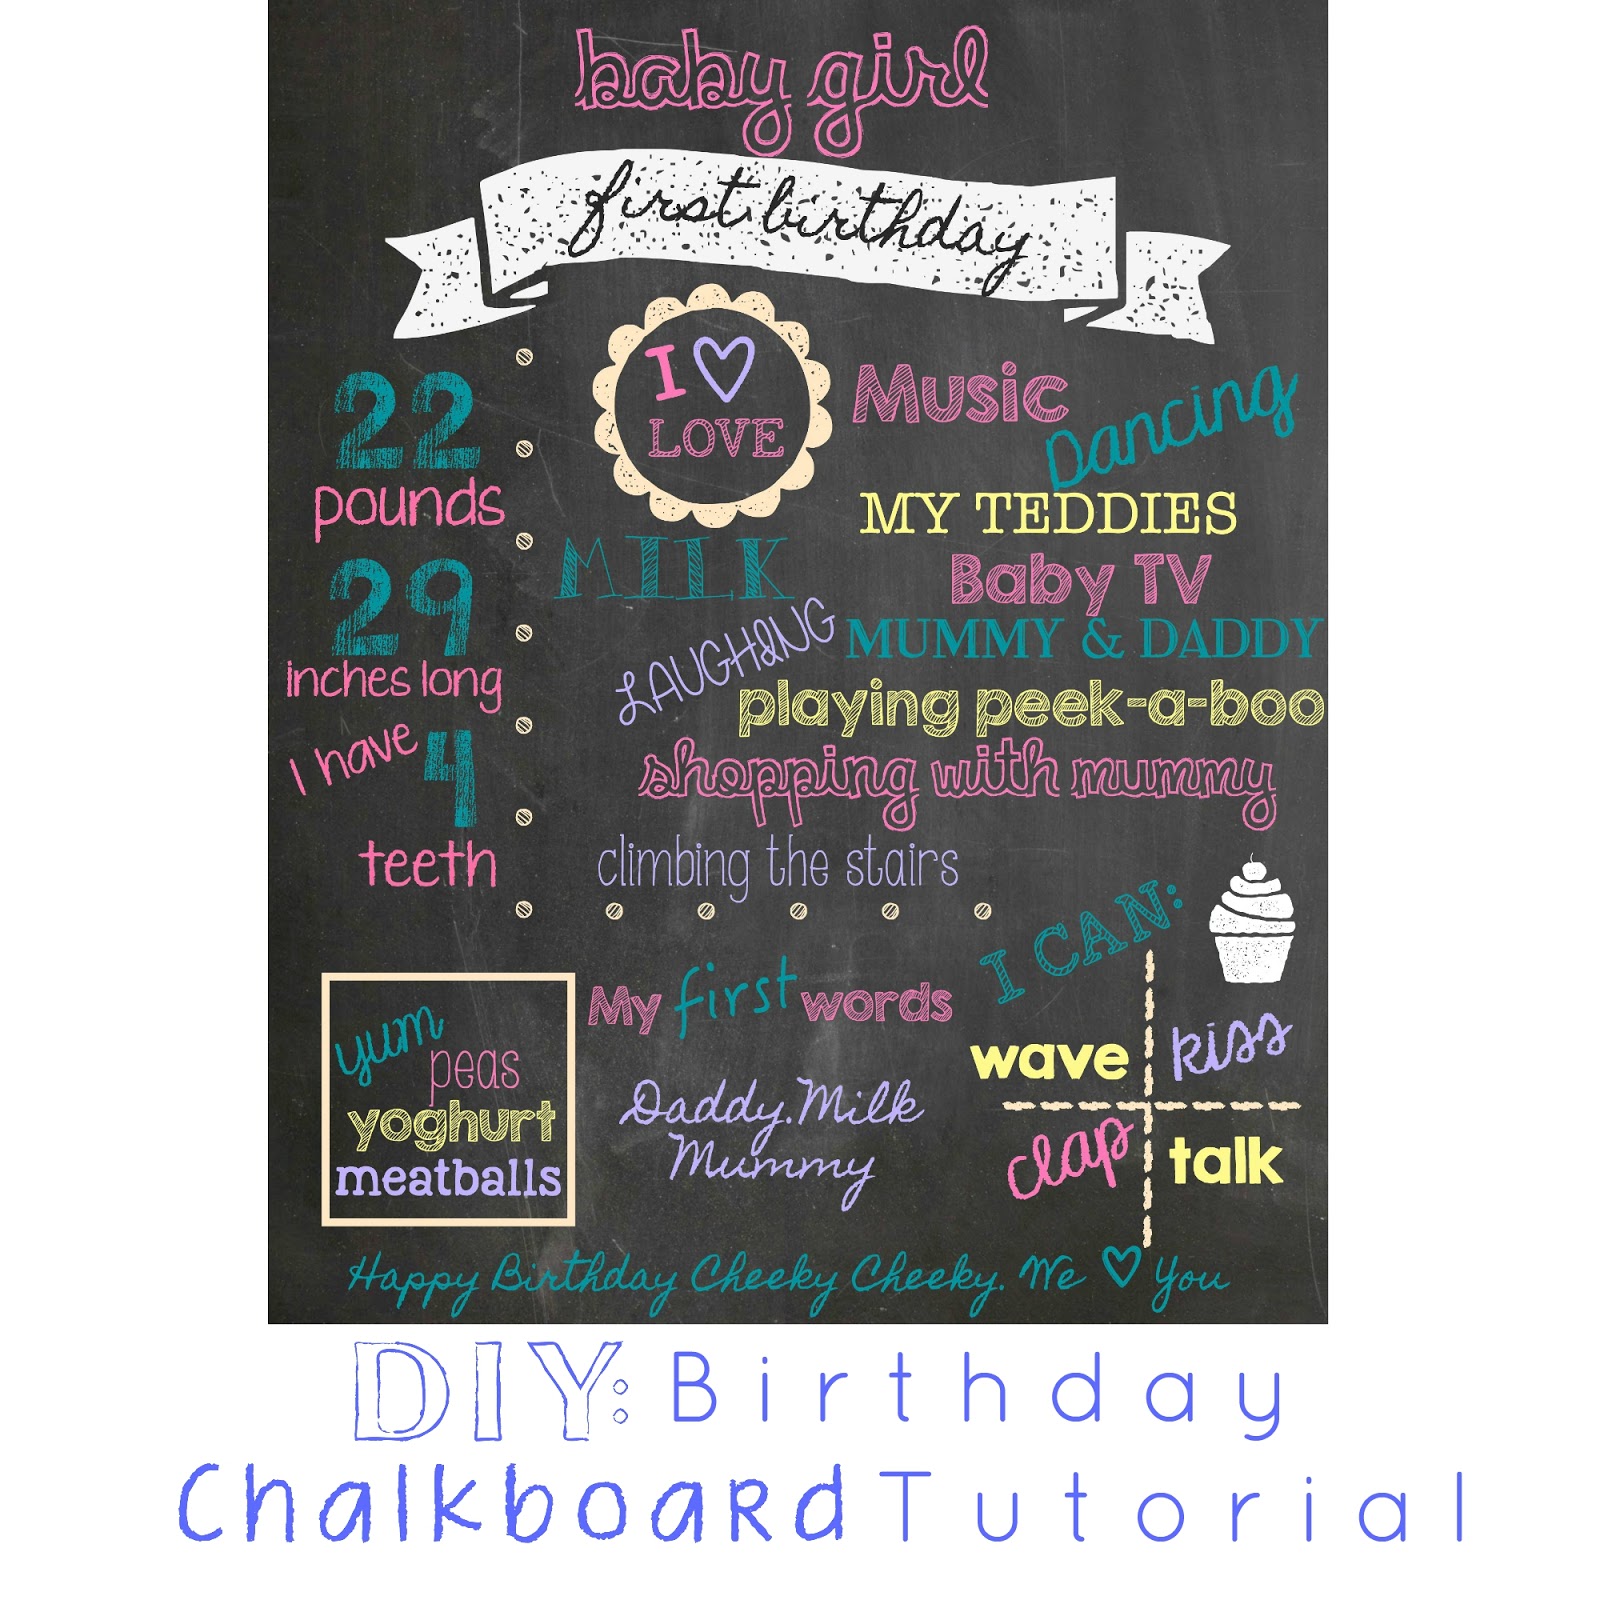 baby girl
first birthday
22
pounds
29
inches long
I have 4
teeth
I ♡
LOVE
Music
Dancing
MY TEDDIES
MILK
Baby TV
LAUGHING
MUMMY & DADDY
playing peek-a-boo
shopping with mummy
climbing the stairs
yum
peas
yoghurt
meatballs
My first words
Daddy.Milk
Mummy
I CAN:
wave
kiss
clap
talk
Happy Birthday Cheeky Cheeky. We ♡ You
DIY: Birthday
Chalkboard Tutorial